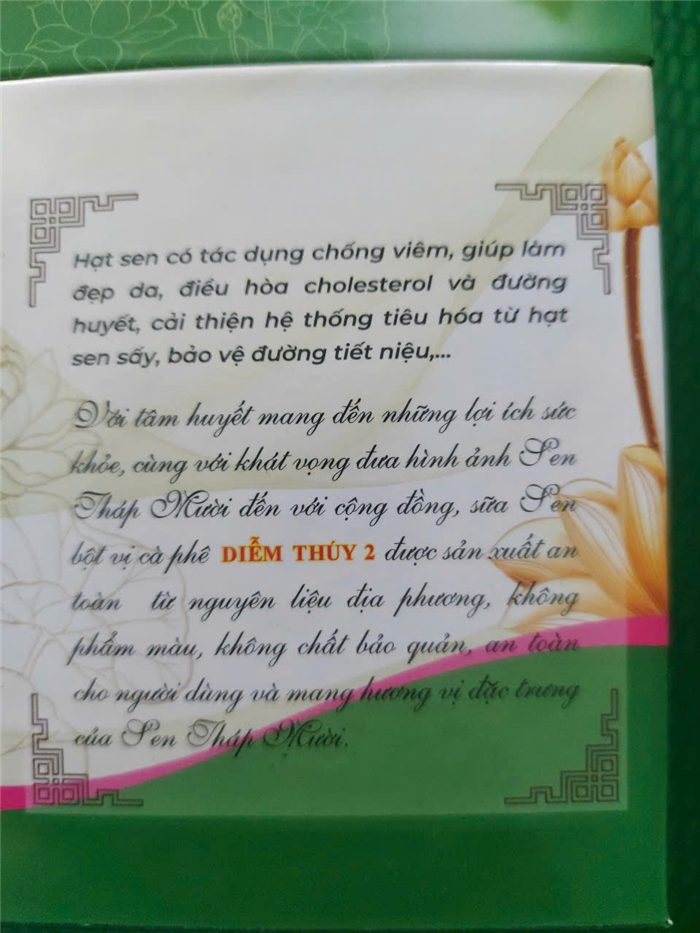 Hạt sen có tác dụng chống viêm, giúp làm
đẹp da, điều hòa cholesterol và đường
huyết, cải thiện hệ thống tiêu hóa từ hạt
sen sấy, bảo vệ đường tiết niệu,...
Với tâm huyết mang đến những lợi ích sức
khỏe, cùng với khát vọng đưa hình ảnh Sen
Tháp Mười đến với cộng đồng, sữa Sen
bột vị cà phê DIỄM THÚY 2 được sản xuất an
toàn từ nguyên liệu địa phương, không
phẩm màu, không chất bảo quản, an toàn
cho người dùng và mang hương vị đặc trưng
của Sen Tháp Mười.